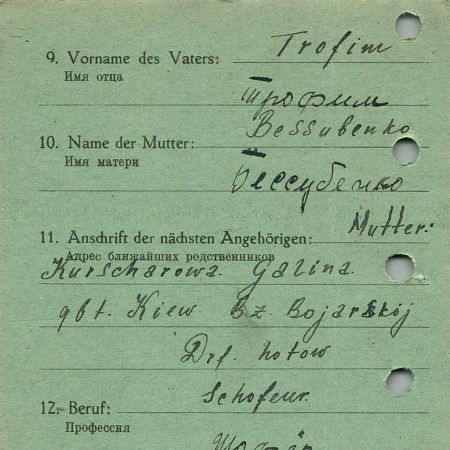 Trofim
9. Vorname des Vaters:
Имя отца
трофим
Bessubenko
10. Name der Mutter:
Имя матери
Бессубенко
Mutter:
11. Anschrift der nächsten Angehörigen:
Адрес ближайших родственников
Kurscharowa. Galina.
gbt. Kiew. Bz. Bojarskij
Drf. hotow
Schofeur.
12. Beruf:
Профессия
Шофёр